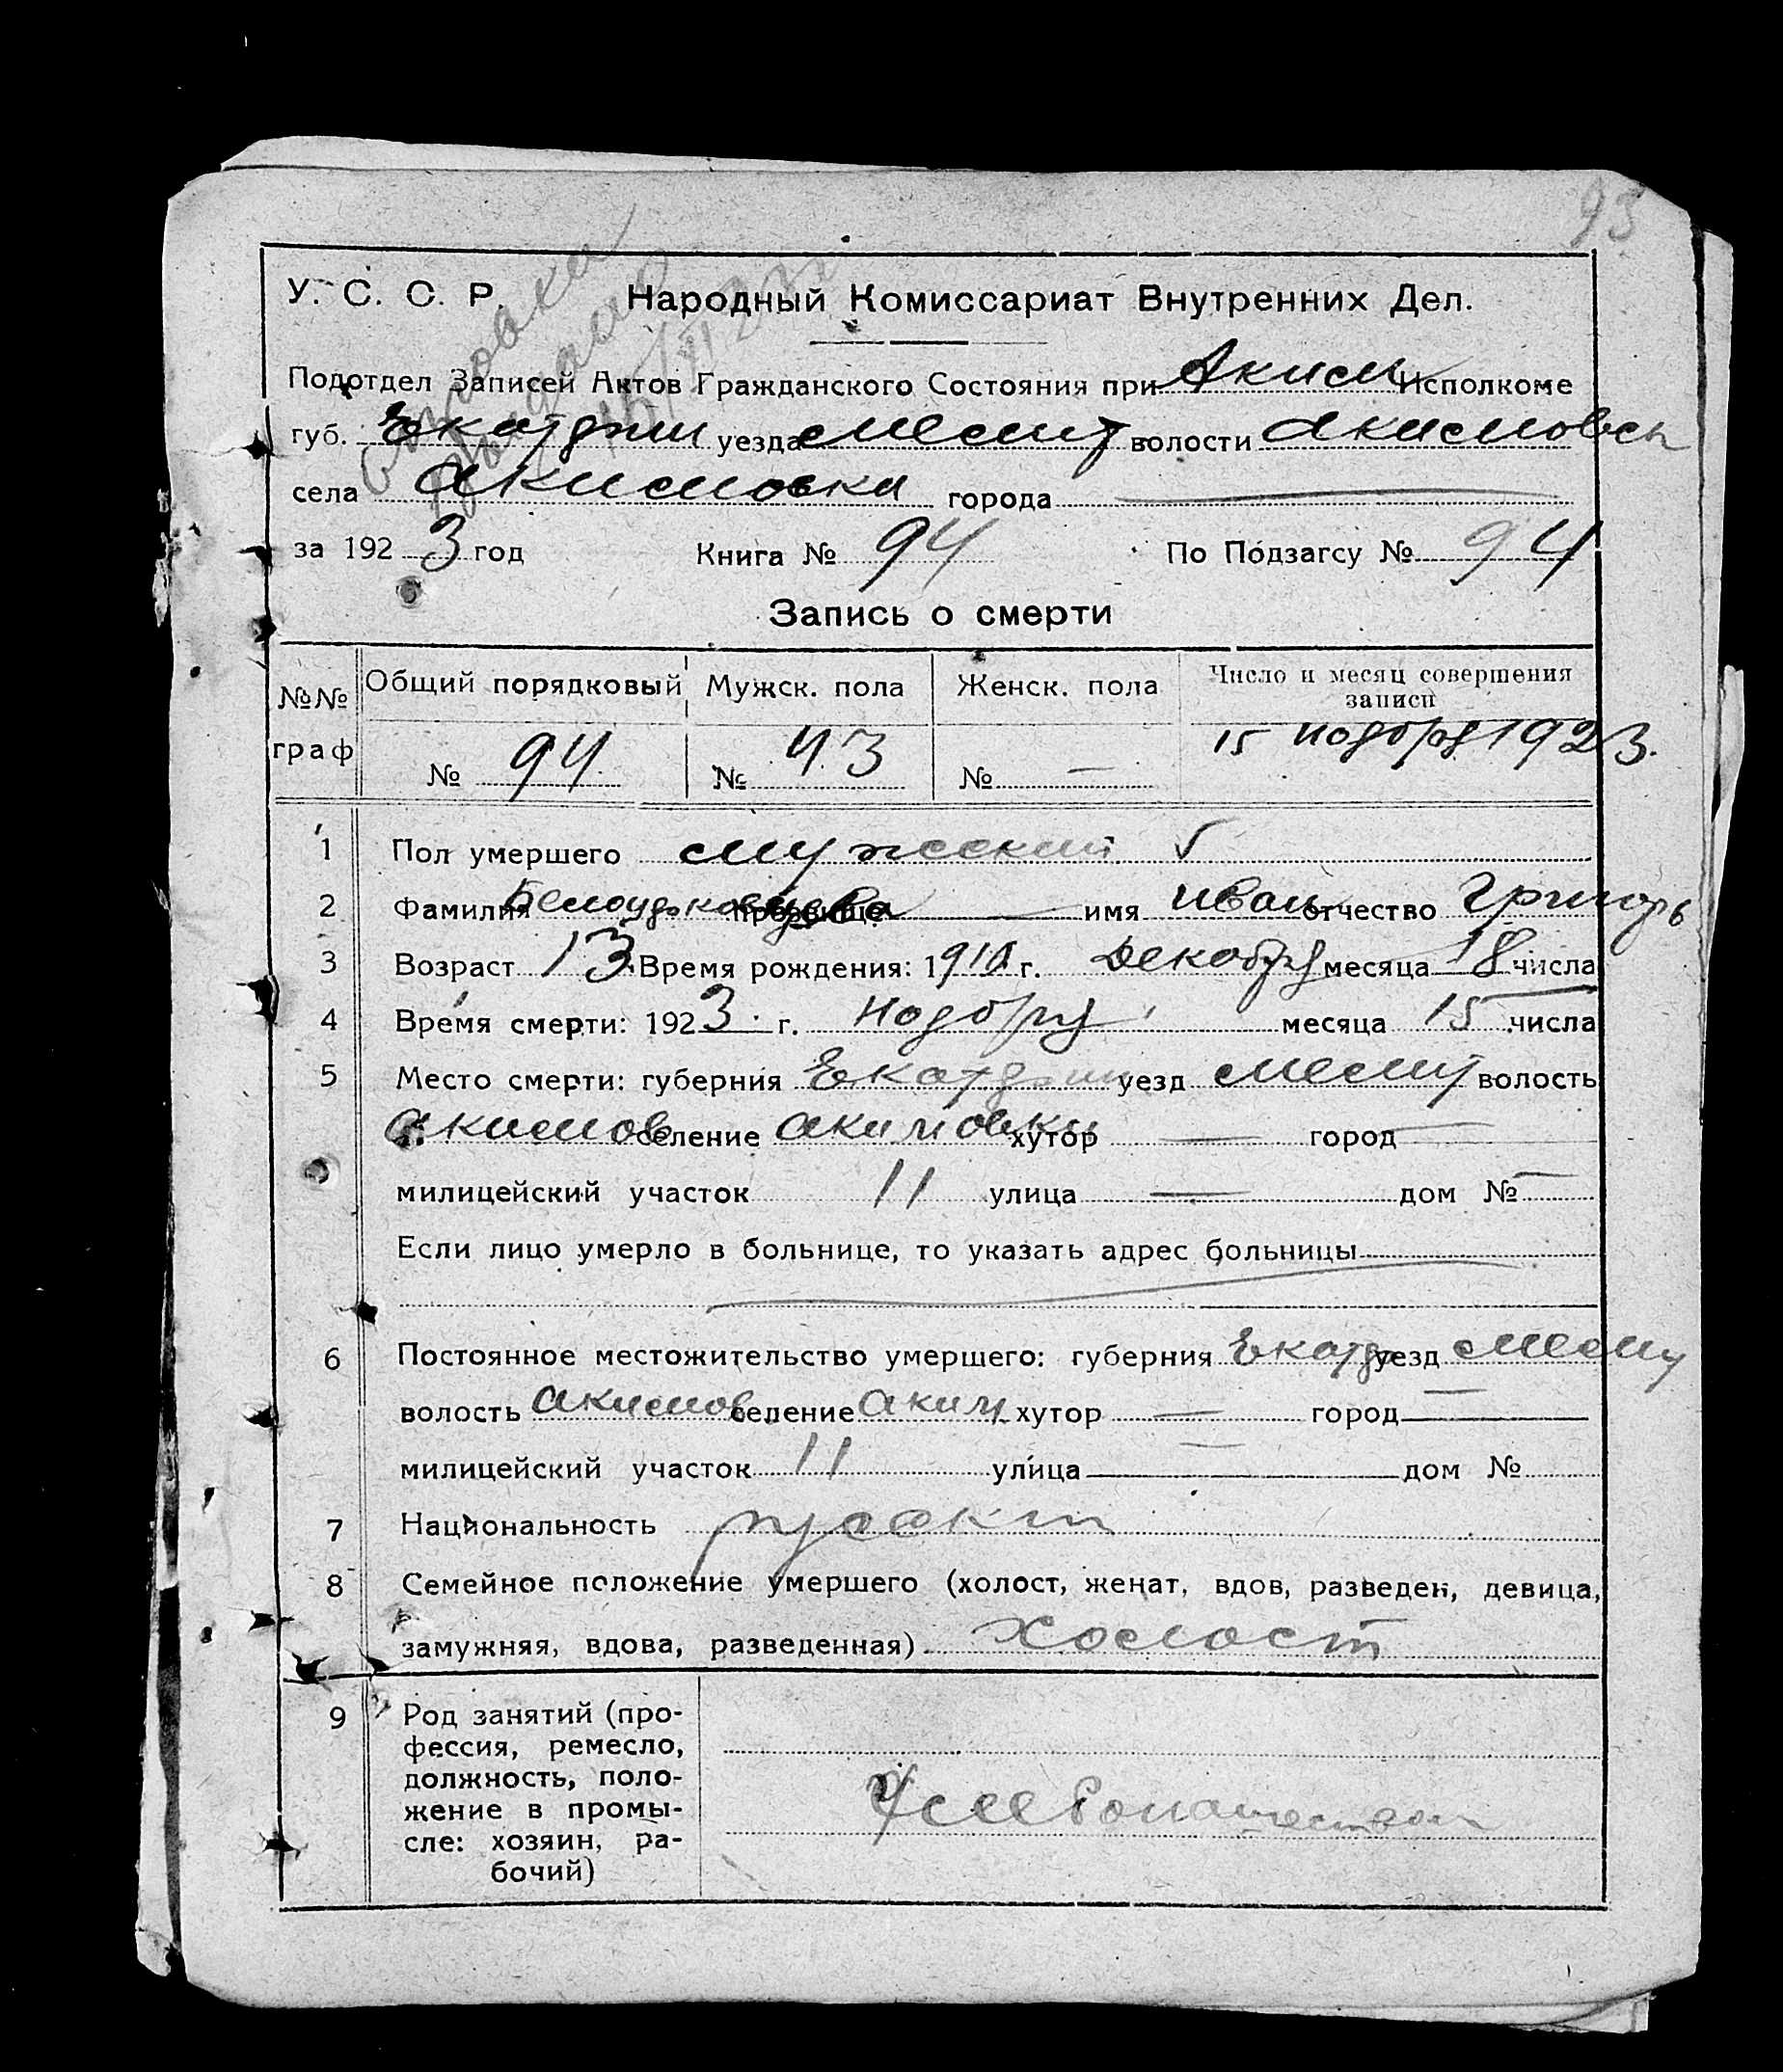 93
У. С. С. Р. Народный Комиссариат Внутренних Дел.
Подотдел Записей Актов Гражданского Состояния при Аким Исполкоме
губ. Екатерин уезда Мелит волости Акимовск
села Акимовка города —
за 1923 год Книга № 94 По Подзагсу № 94
Запись о смерти
№№ граф Общий порядковый Мужск. пола Женск. пола Число и месяц совершения записи
№ 94. № 43 № — 15 ноября 1923.
1 Пол умершего мужской
2 Фамилия прозвище — имя Иван отчество Григорь
3 Возраст 13 Время рождения: 1910 г. Декабря месяца 18 числа
4 Время смерти: 1923 г. Ноября месяца 15 числа
5 Место смерти: губерния уезд Мелит волость
Акимов селение Акимовки хутор — город —
милицейский участок 11 улица — дом № —
Если лицо умерло в больнице, то указать адрес больницы
6 Постоянное местожительство умершего: губерния уезд Мелит
волость Акимов селение Аким хутор — город —
милицейский участок 11 улица — дом №
7 Национальность русский
8 Семейное положение умершего (холост, женат, вдов, разведен, девица,
замужняя, вдова, разведенная) холост
9 Род занятий (про-
фессия, ремесло,
должность, поло-
жение в промы-
сле: хозяин, ра-
бочий)